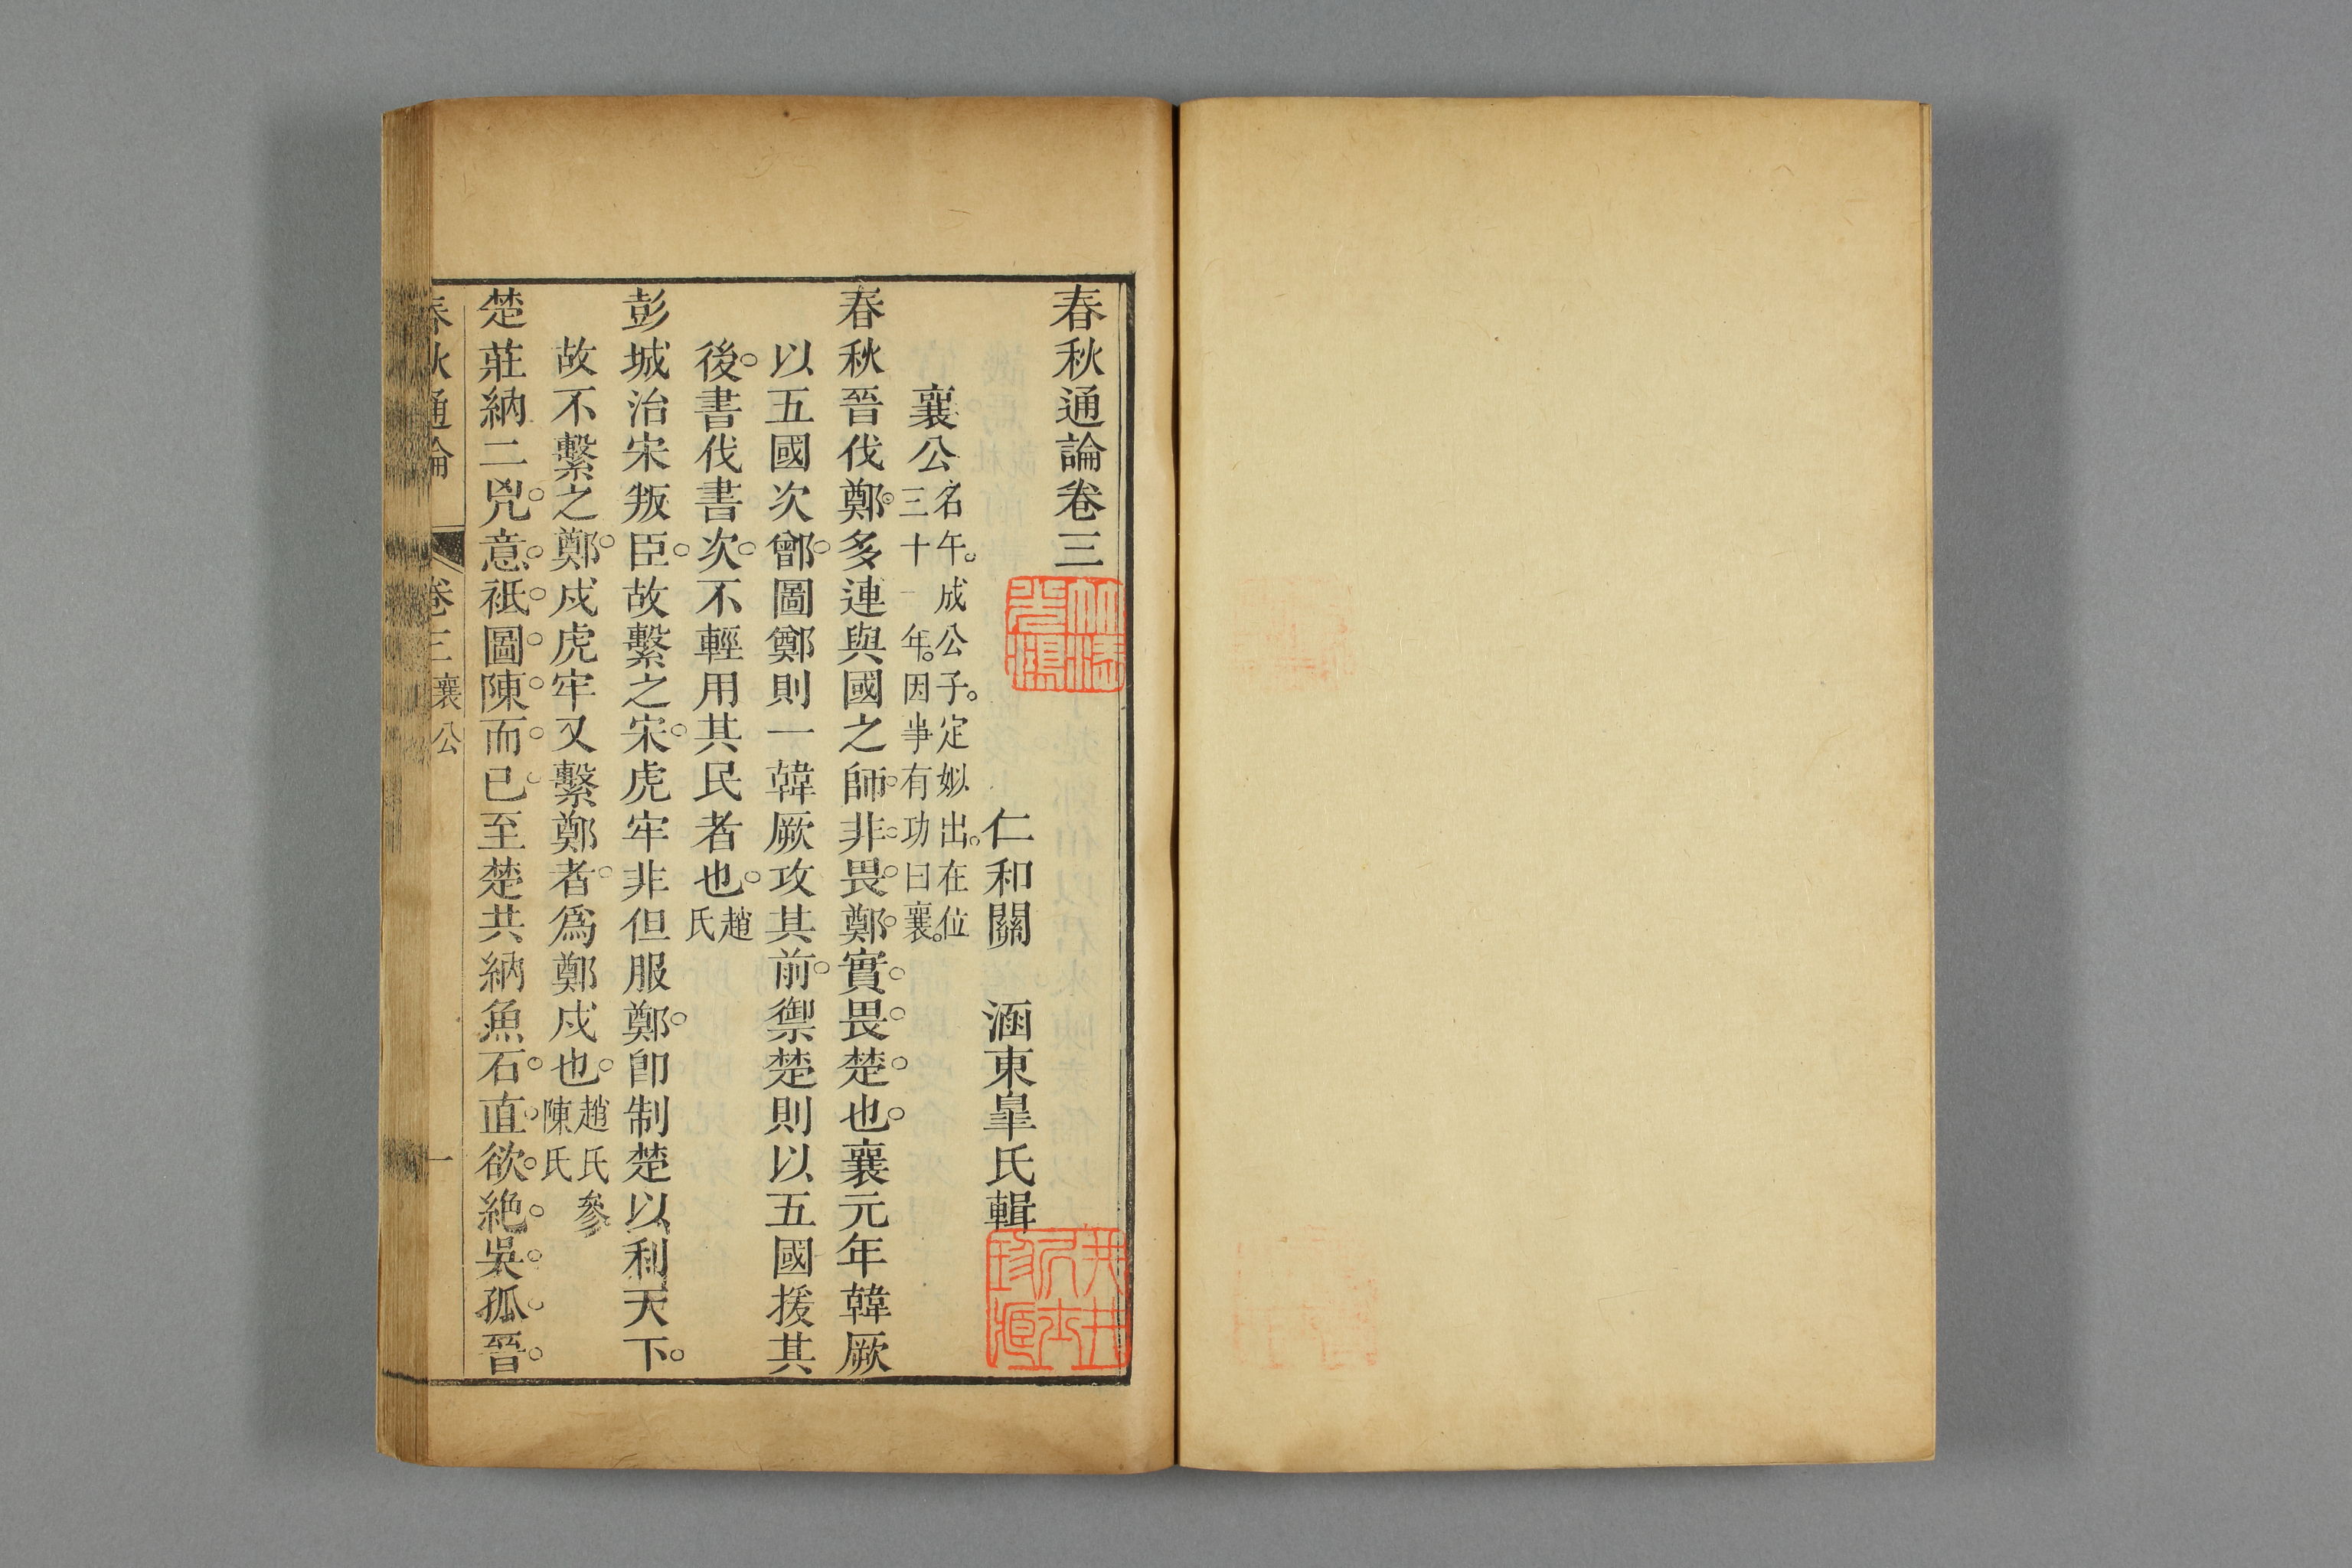 春秋通論卷三
仁和關　涵東臯氏輯
襄公名午。成公子。定姒出。在位三十一年。因事有功曰襄。
春秋晉伐鄭。多連與國之師。非畏鄭。實畏楚也。襄元年韓厥
以五國次鄫。圖鄭則一韓厥攻其前。禦楚則以五國援其
後。書伐書次。不輕用其民者也。趙氏
彭城治宋叛臣。故繫之宋。虎牢非但服鄭。卽制楚以利天下。
故不繫之鄭。戍虎牢又繫鄭者。爲鄭戍也。趙氏陳氏參
楚莊納二兇。意。祗。圖。陳。而。已。至楚共納魚石。直。欲。絶。吳。孤。晉。
春秋通論　卷三襄公　一